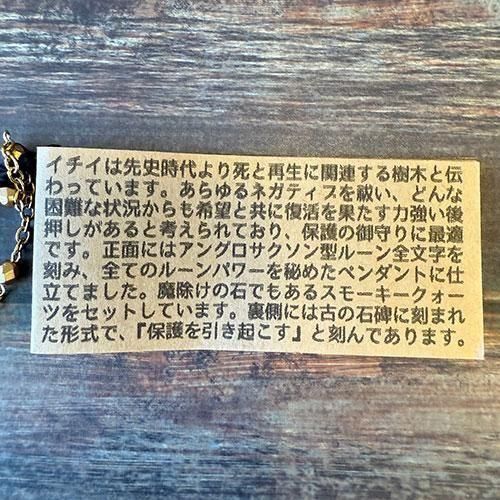 イチイは先史時代より死と再生に関連する樹木と伝
わっています。あらゆるネガティブを祓い、どんな
困難な状況からも希望と共に復活を果たす力強い後
押しがあると考えられており、保護の御守りに最適
です。正面にはアングロサクソン型ルーン全文字を
刻み、全てのルーンパワーを秘めたペンダントに仕
立てました。魔除けの石でもあるスモーキークォー
ツをセットしています。裏側には古の石碑に刻まれ
た形式で、『保護を引き起こす』と刻んであります。